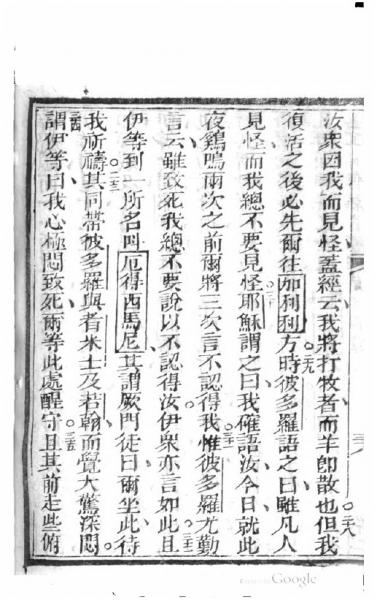 汝眾因我而見怪蓋經云我將打牧者而羊即散也但我
二八
復活之後必先爾往加利利方時彼多羅語之曰雖凡人
二九
見怪而我總不要見怪耶穌謂之曰我確語汝今日就此
三十
夜鷄鳴兩次之前爾將三次言不認得我惟彼多羅尤勤
三一
言云雖致死我總不要說以不認得汝伊眾亦言如此且
三二
伊等到一所名呌厄得西馬尼其謂厥門徒曰爾坐此待
三三
我祈禱其同帶彼多羅與者米士及若翰而覺大驚深悶
三四
謂伊等曰我心極悶致死爾等此處醒守且其前走些俯
三五
Google